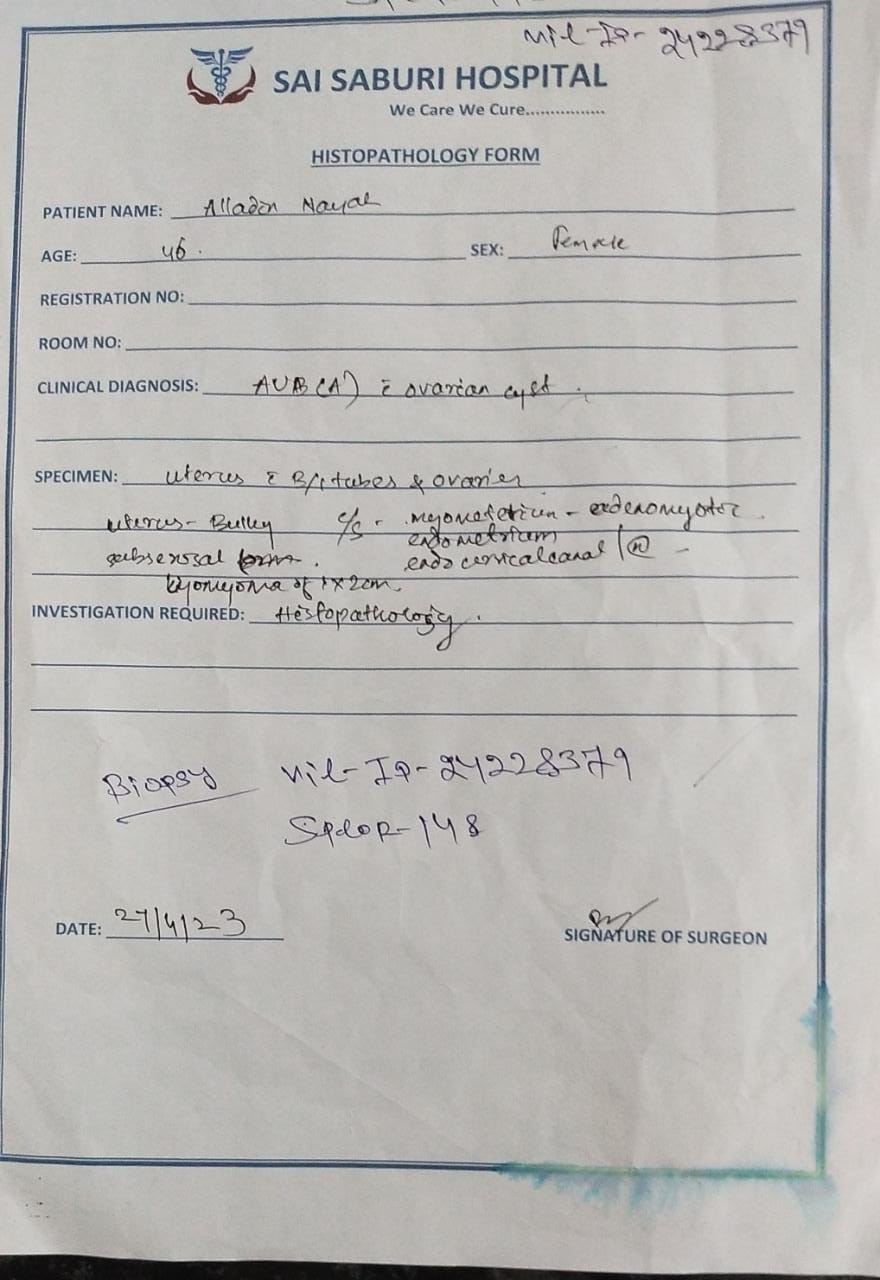 Nil-IP- 24228379
SAI SABURI HOSPITAL
We Care We Cure................
HISTOPATHOLOGY FORM
PATIENT NAME: Alladin Nayak
AGE: 46. SEX: Female
REGISTRATION NO:
ROOM NO:
CLINICAL DIAGNOSIS: AUB(A) c̄ ovarian cyst.
SPECIMEN: uterus c̄ B/L tubes & ovaries
uterus - Bulky c/s - myometrium - adenomyotic.
endometrium
subserosal endocervical canal / (N) -
lyomyoma of 1x2cm.
INVESTIGATION REQUIRED: Histopathology.
Biopsy Nil-IP-24228379
148
DATE: 27/4/23
SIGNATURE OF SURGEON